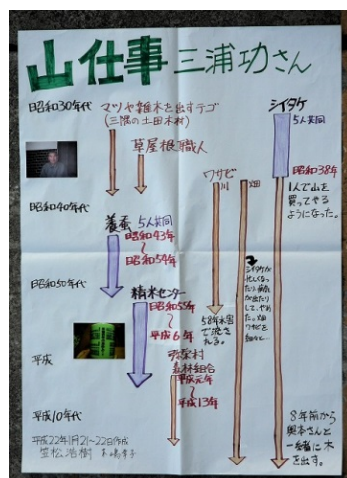 山仕事 三浦功さん
昭和30年代
マツや雑木を出すテゴ
(三隅の土田木村)
草屋根職人
シイタケ
5人共同
昭和38年
1人で山を
買ってやる
ようになった。
ワサビ
川
畑
昭和40年代
養蚕 5人共同
昭和43年
〜
昭和54年
昭和50年代
精米センター
昭和55年
〜
平成6年
58年水害
で流さ
れる。
シイタケが
忙しくなっ
たり、病気
が出たり
して、やめ
た。畑
ワサビを
平成
弥栄村
森林組合
平成元年
〜
平成13年
平成10年代
8年前から
奥本さんと
一緒に木
を出す。
平成22年1月21〜22日作成
笠松浩樹